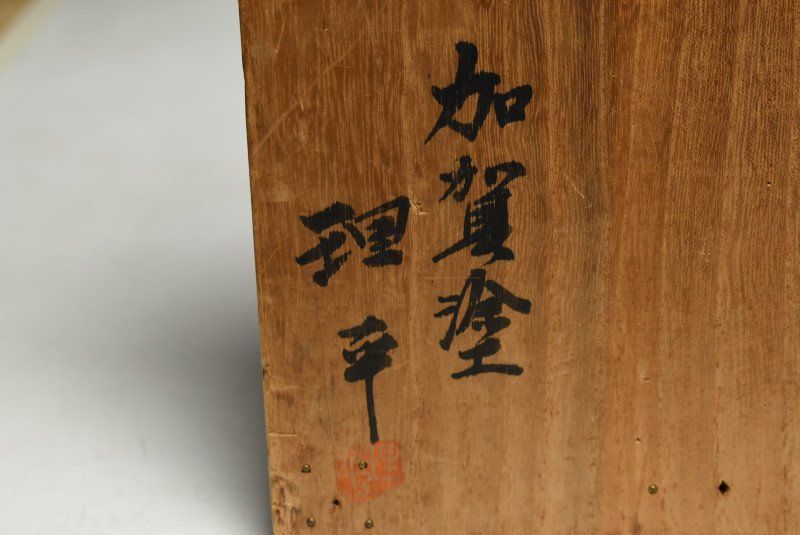 加賀塗
理平